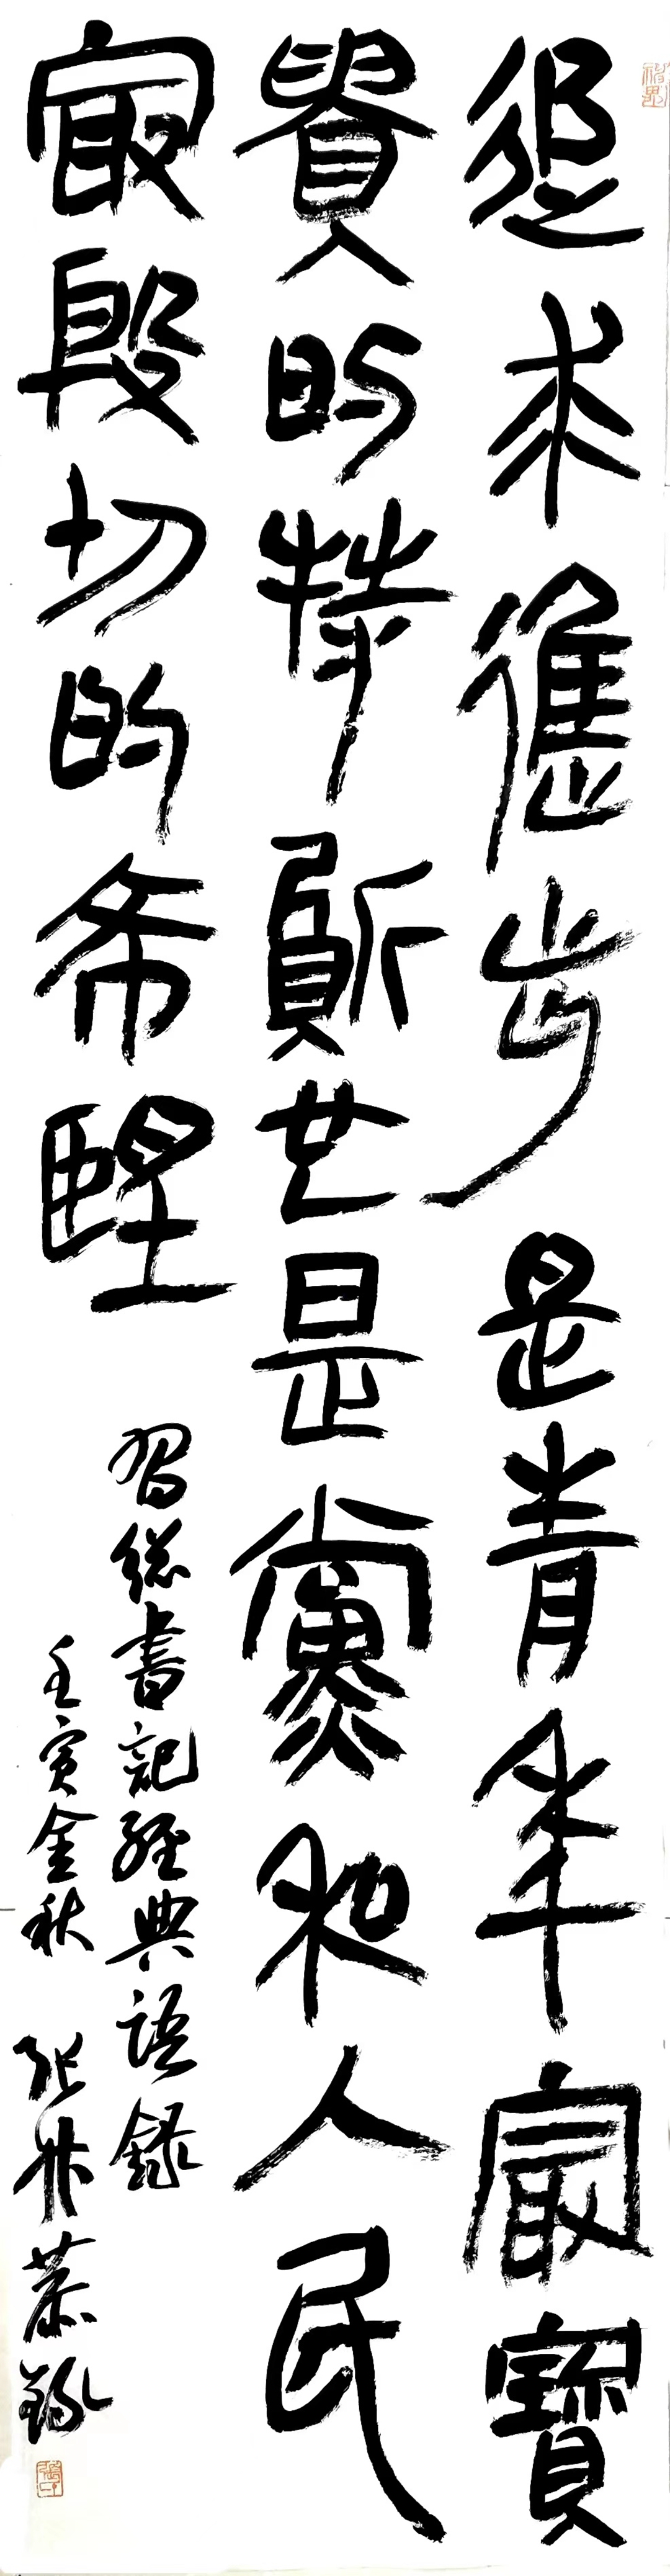 追求進步是青年最寶
貴的特質也是黨和人民
最殷切的希望
習總書記經典語錄
壬寅金秋 張恭錄